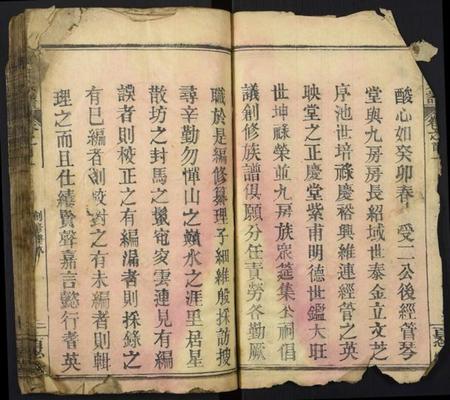 酸心如癸卯春　受二公後經管琴
堂與九房房長紹域世泰金立文芝
序池世培祿慶裕興維連經管之英
映堂之正慶堂紫甫明德世鑑大旺
世坤祿榮並九房族衆筵集公祠倡
議創修族譜俱願分任責勞各勤厥
職於是編修纂理子細維殷採訪搜
尋辛勤勿憚山之巔水之涯里居星
散坊之封馬之鬣窀穸雲連見有編
誤者則校正之有編漏者則採錄之
有已編者則校對之有未編者則輯
理之而且仕績賢聲嘉言懿行耆英